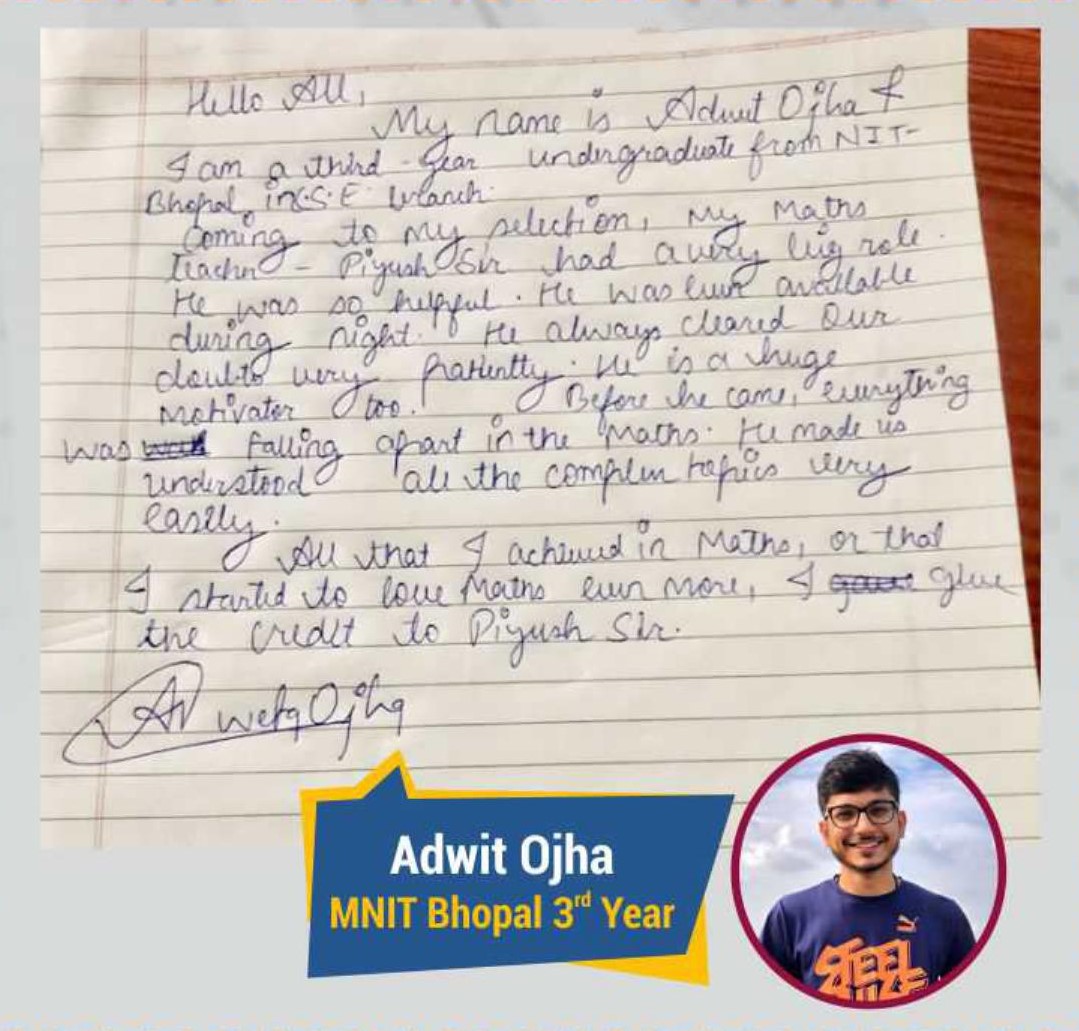 Hello All,
My name is Adwit Ojha &
I am a third-year undergraduate from NIT-
Bhopal, in C.S.E. branch.
Coming to my selection, My Maths
Teacher - Piyush Sir had a very big role.
He was so helpful. He was even available
during night. He always cleared Our
doubts very patiently. He is a huge
Motivater too. Before he came, everything
was falling apart in the Maths. He made us
understood all the complex topics very
easily.
All that I achieved in Maths, or that
I started to love Maths even more, I give
the credit to Piyush Sir.
Ojha
Adwit Ojha
MNIT Bhopal 3rd Year
STEEL